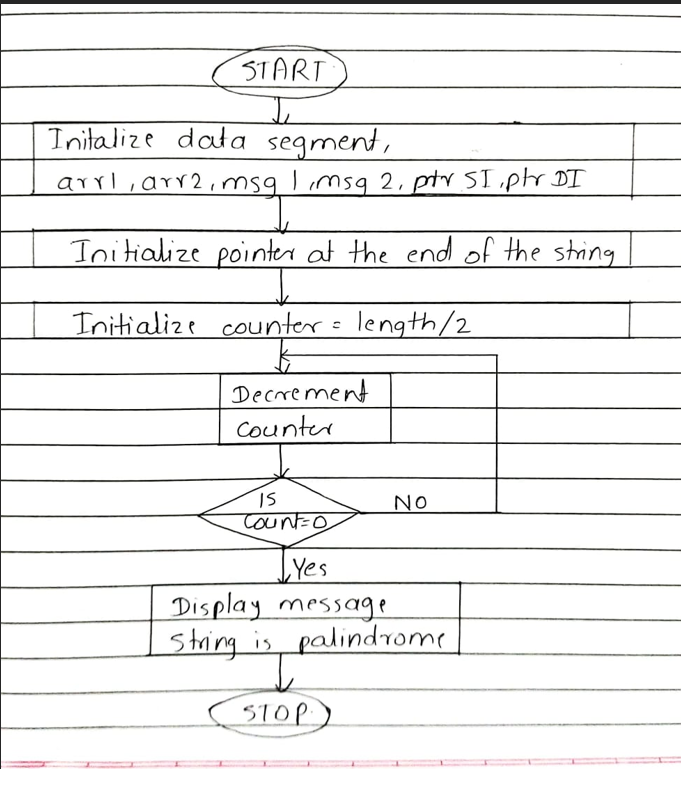 START
Initalize data segment,
arr1, arr2, msg 1, msg 2, ptr SI, ptr DI
Initialize pointer at the end of the string
Initialize counter = length/2
Decrement
counter
IS
Count=0
NO
Yes
Display message
String is palindrome
STOP